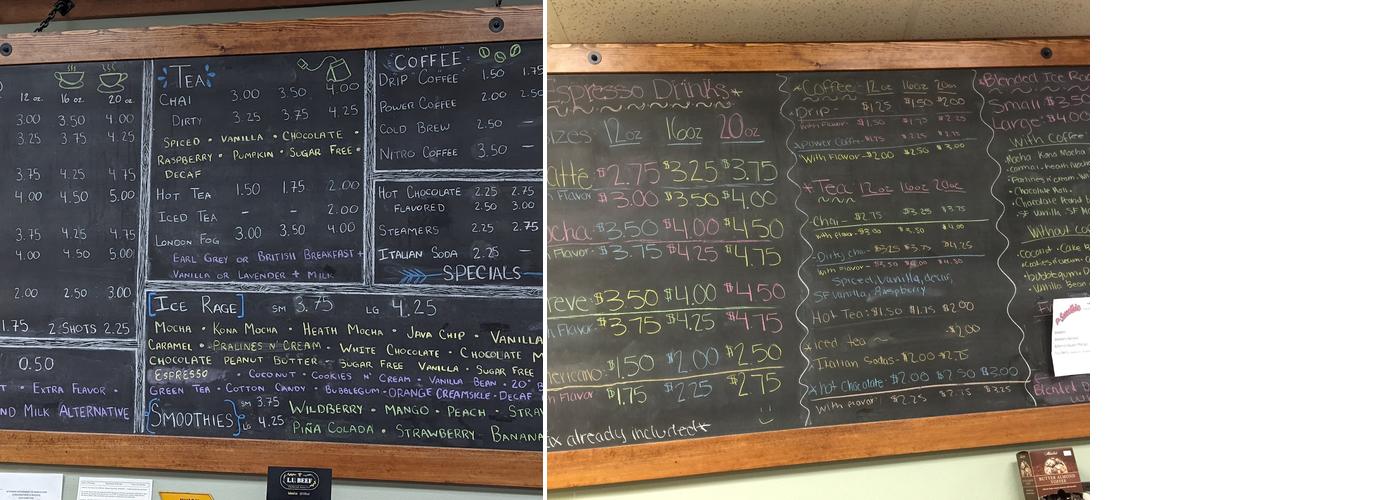 12 oz. 16 oz. 20 oz.
3.00 3.50 4.00
3.25 3.75 4.25
3.75 4.25 4.75
4.00 4.50 5.00
3.75 4.25 4.75
4.00 4.50 5.00
2.00 2.50 3.00
1.75 2 SHOTS 2.25
0.50
EXTRA FLAVOR
ND MILK ALTERNATIVE
TEA
CHAI 3.00 3.50 4.00
DIRTY 3.25 3.75 4.25
SPICED • VANILLA • CHOCOLATE •
RASPBERRY • PUMPKIN • SUGAR FREE •
DECAF
HOT TEA 1.50 1.75 2.00
ICED TEA - - 2.00
LONDON FOG 3.00 3.50 4.00
EARL GREY OR BRITISH BREAKFAST +
VANILLA OR LAVENDER + MILK
"COFFEE"
DRIP COFFEE 1.50 1.75
POWER COFFEE 2.00 2.50
COLD BREW 2.50 -
NITRO COFFEE 3.50 -
HOT CHOCOLATE 2.25 2.75
FLAVORED 2.50 3.00
STEAMERS 2.25 2.75
ITALIAN SODA 2.25 -
SPECIALS
ICE RAGE SM 3.75 LG 4.25
MOCHA • KONA MOCHA • HEATH MOCHA • JAVA CHIP • VANILLA
CARAMEL • PRALINES N' CREAM • WHITE CHOCOLATE • CHOCOLATE M
CHOCOLATE PEANUT BUTTER • SUGAR FREE VANILLA • SUGAR FREE
ESPRESSO • COCONUT • COOKIES N' CREAM • VANILLA BEAN • 20° B
GREEN TEA • COTTON CANDY • BUBBLEGUM • ORANGE CREAMSICLE • DECAF
SMOOTHIES SM 3.75 LG 4.25
WILDBERRY • MANGO • PEACH • STRAW
PIÑA COLADA • STRAWBERRY BANANA
LU BEEF
Espresso Drinks*
izes: 12oz 16oz 20oz
atte: $2.75 $3.25 $3.75
Flavor $3.00 $3.50 $4.00
ocha: $3.50 $4.00 $4.50
Flavor: $3.75 $4.25 $4.75
reve: $3.50 $4.00 $4.50
Flavor: $3.75 $4.25 $4.75
mericano: $1.50 $2.00 $2.50
Flavor: $1.75 $2.25 $2.75
ax already included*
*Coffee: 12oz 16oz 20oz
Drip- $1.25 $1.50 $2.00
With Flavor- $1.50 $1.75 $2.25
Power Coffee- $1.75 $2.25 $2.75
With Flavor- $2.00 $2.50 $3.00
*Tea: 12oz 16oz 20oz
Chai- $2.75 $3.25 $3.75
With flavor- $3.00 $3.50 $4.00
Dirty chai- $3.25 $3.75 $4.25
With Flavor- $3.50 $4.00 $4.50
Spiced, Vanilla, decaf,
SF vanilla, Raspberry
Hot Tea: $1.50 $1.75 $2.00
*iced tea - $2.00
Italian Sodas- $2.00 $2.75
*Hot Chocolate: $2.00 $2.50 $3.00
With Flavor: $2.25 $2.75 $3.25
*Blended Ice Rag
Small: $3.50
Large: $4.00
With Coffee
Mocha Kona Mocha
• Chocolate
• Chocolate Peanut b
SF Vanilla, SF Mo
Without Co
• Coconut • Cake B
• Cookies n' cream • Co
• bubblegum
• Vanilla Bean
Smoothie
Blended D
BUTTER ALMOND
TOFFEE